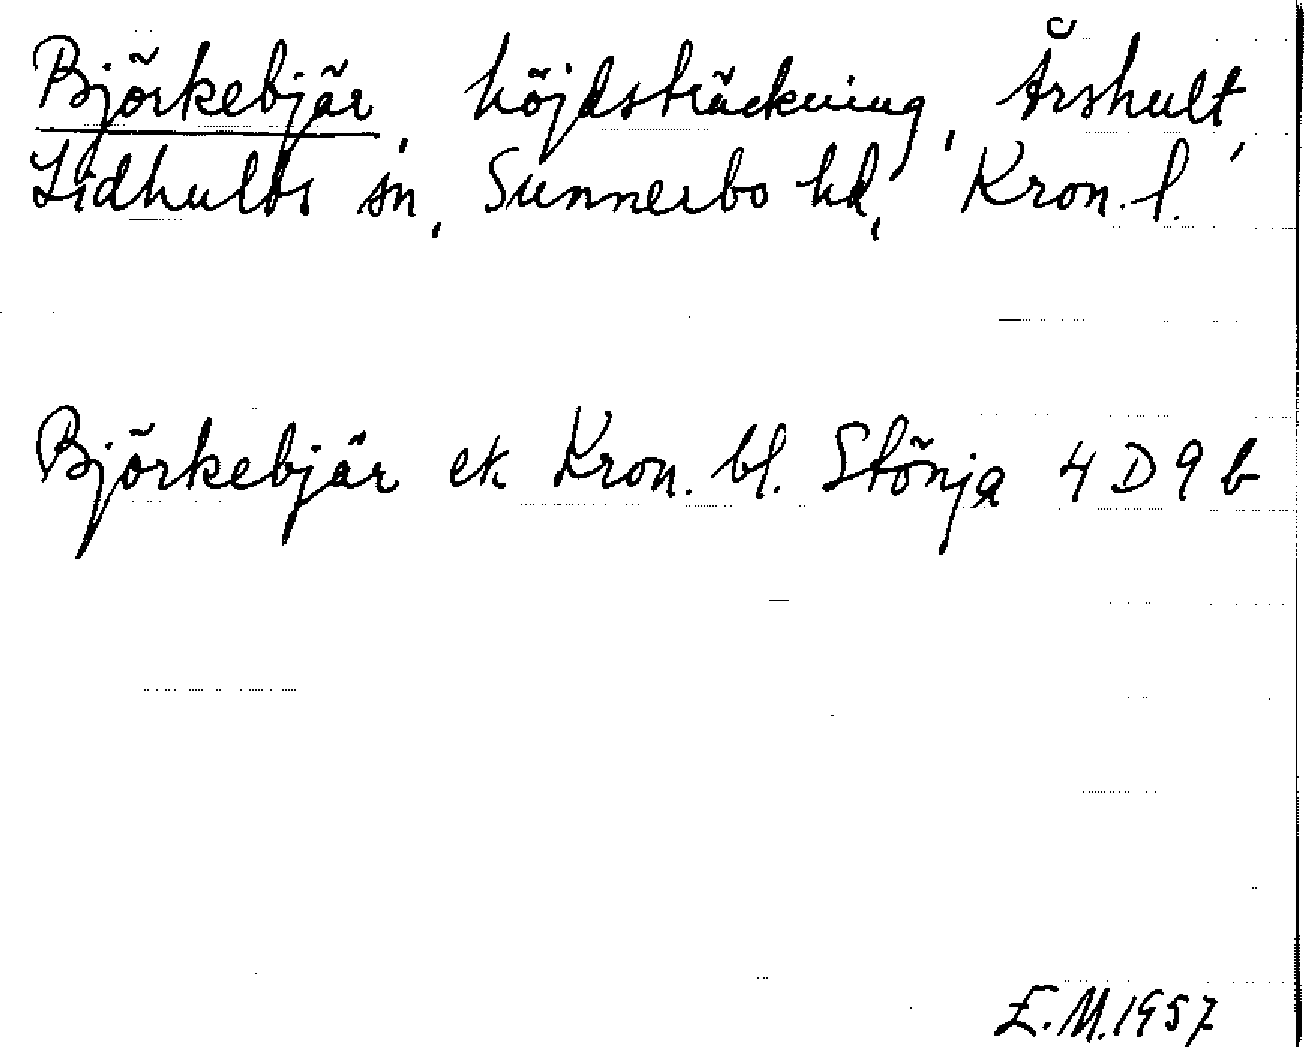 Björkebjär, höjdsträckning, Årshult,
Lidhults sn, Sunnerbo hd, Kron. l.
Björkebjär ek Kron. bl. Stönja 4 D 9 b
E.M. 1957